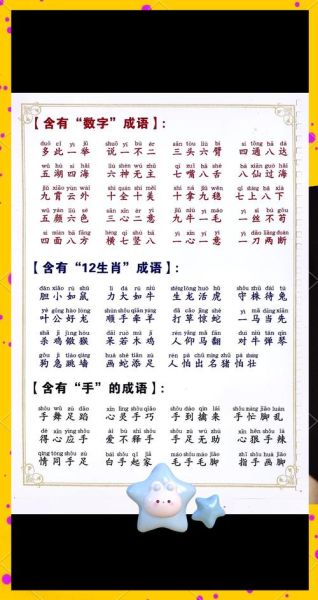 【含有“数字”成语】:
duō cǐ yì jǔ shuō yī bú èr sān tóu liù bì sì tōng bā dá
多此一举 说一不二 三头六臂 四通八达
wǔ hú sì hǎi liù shén wú zhǔ qī zuǐ bā shé bā xiān guò hǎi
五湖四海 六神无主 七嘴八舌 八仙过海
jiǔ xiāo yún wài shí quán shí měi shí ná jiǔ wěn qī shàng bā xià
九霄云外 十全十美 十拿九稳 七上八下
wǔ yán liù sè sān xīn èr yì jiǔ niú yì máo yì sī bù gǒu
五颜六色 三心二意 九牛一毛 一丝不苟
sì miàn bā fāng héng qī shù bā yì xīn yí yì yì dāo liǎng duàn
四面八方 横七竖八 一心一意 一刀两断
【含有“12生肖”成语】:
dǎn xiǎo rú shǔ lì dà rú niú shēng lóng huó hǔ shǒu zhū dài tù
胆小如鼠 力大如牛 生龙活虎 守株待兔
yè gōng hào lóng shùn shǒu qiān yáng dǎ cǎo jīng shé yì mǎ dāng xiān
叶公好龙 顺手牵羊 打草惊蛇 一马当先
shā jī jǐng hóu dāi ruò mù jī rén yǎng mǎ fān duì niú tán qín
杀鸡儆猴 呆若木鸡 人仰马翻 对牛弹琴
gǒu jí tiào qiáng huà shé tiān zú rén pà chū míng zhū pà zhuàng
狗急跳墙 画蛇添足 人怕出名猪怕壮
【含有“手”的成语】:
shǒu wǔ zú dǎo xīn líng shǒu qiǎo shǒu dào qín lái shǒu máng jiǎo luàn
手舞足蹈 心灵手巧 手到擒来 手忙脚乱
dé xīn yìng shǒu ài bú shì shǒu shǒu zú wú zhù xīn hěn shǒu là
得心应手 爱不释手 手足无助 心狠手辣
qíng tóng shǒu zú bái shǒu qǐ jiā máo shǒu máo jiǎo zhǐ shǒu huà jiǎo
情同手足 白手起家 毛手毛脚 指手画脚